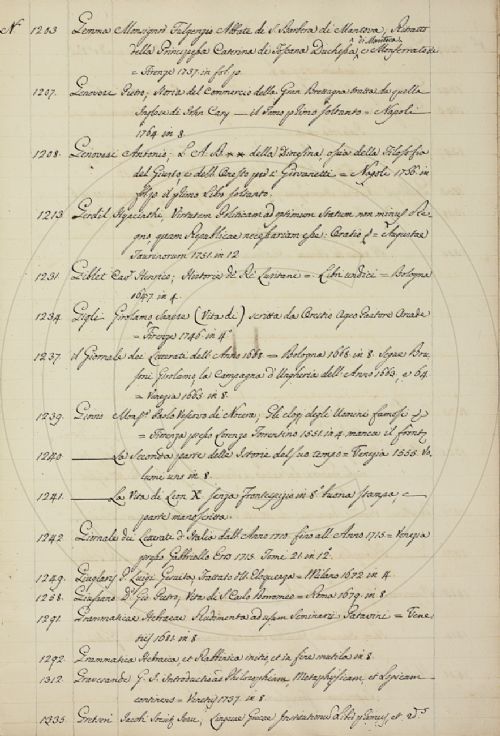 N. 1203 Gemma Monsignor Fulgenzio Abbate di S. Barbera di Mantova, Ritratto
della Principessa Caterina di Toscana Duchessa di Mantova, e Monferrato &c
= Firenze 1737. in fol. p.
1207. Genovesi Pietro; Storia del Commercio della Gran Brettagna tratta da quella
Inglese di John Cary — il Tomo primo soltanto = Napoli
1764. in 8.
1208. Genovesi Antonio; L. A. B. della Diceosina, ossia della Filosofia
del Giusto, e dell' Onesto per i Giovanetti = Napoli 1766. in
il primo Libro soltanto.
1213. Gerdil Hyacinthi, Virtutem Politicam ad optimum Statum non minus Re-
gno quam Republicae necessariam esse: Oratio = Augustae
Taurinorum 1751. in 12
1231. Henrico; Historie di Lusitane = Libri undici = Bologna
1647. in 4.
1234. Gigli Girolamo Sanese (Vita di) scritta da Oresbio Agieo Pastore Arcade
= Firenze 1746. in 4.
1237. il Giornale dei Letterati dell' Anno 1668 = Bologna 1668. in 8. Segue Bru-
soni Girolamo, la Campagna d'Ungheria dell' Anno 1663, e 64
= Venezia 1665. in 8.
1239. Giovio Paolo Vescovo di Nocera; Gli elogi degli Uomini famosi
= Firenza presso Lorenzo Torrentino 1551. in 4. manca il
1240. ——— La Seconda parte della Istoria del suo tempo = Venezia 1555. Vo-
lume uno in 8.
1241. ——— La Vita di Leon X. senza Frontespizio in 8. buona stampa, e
parte manoscritta.
1242. Giornale dei Letterati d'Italia dall' Anno 1710. fino all' Anno 1715 = Venezia
presso Gabbriello Erz 1715. Tomi 21 in 12.
1249. Giuglaris Luigi Gesuita; Trattato dell' Eloquenza = Milano 1672. in 4.
1258. Giussano Gio: Pietro, Vita di S. Carlo Borromeo = Roma 1679. in 8.
1291. Grammaticae Hebraeae Rudimenta ad usum Seminarii Patavini = Vene-
tiis 1681. in 8.
1292. Grammatica Hebraica, et Rabbinica initio, et in fine mutila in 8.
1312. Gravesande G. J. Introductio ad Philosophiam, Metaphysicam, et Logicam
continens = Venetiis 1737. in 8.
1335. Gretseri Jacobi Linguae Graecae Institutionum Liber primus, et 2.